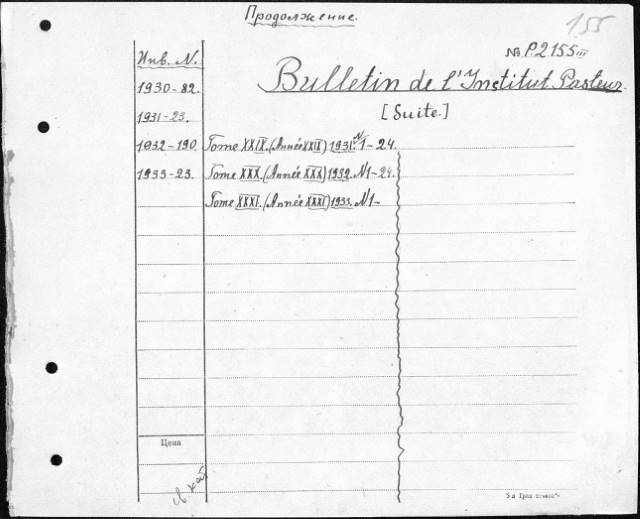 Продолжение.
155
№ P.2155 III
Инв. N.
Bulletin de l'Institut Pasteur.
[Suite.]
1930-82.
1931-23.
1932-190. Tome XXIX. (Année XXIX) 1931. N 1-24.
1933-23. Tome XXX. (Année XXX) 1932. N1-24.
Tome XXXI. (Année XXXI) 1933. N1-
Цена